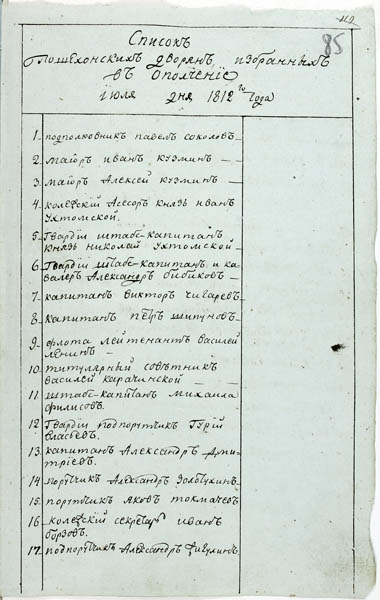 85
Списокъ
Пошехонскихъ дворянъ, избранныхъ
въ Ополченіе
Іюля дня 1812го года
1 подполковникъ павелъ соколовъ
2 маіоръ иванъ кузминъ
3 маіоръ Алексей кузминъ
4 колежскій Асесоръ князь иванъ
ухтомской.
5 Гвардіи штабс-капитанъ
князь николай ухтомской
6 Гвардіи штабс-капитанъ и ка-
валеръ Александръ бибиковъ
7 капитанъ викторъ
8 капитанъ петръ шипуновъ
9 флота лейтенантъ василей
ленинъ
10 титулярный советникъ
василей карачинской
11 штабс-капитанъ михаила
филисовъ.
12 Гвардіи подпорутчикъ Гурій
власьевъ.
13 капитанъ Александръ Дми-
тріевъ.
14 порутчикъ Александръ Золотухинъ
15 порутчикъ яковъ токмачевъ
16 колежскій секретарь иванъ
борзовъ.
17 подпорутчикъ Александръ